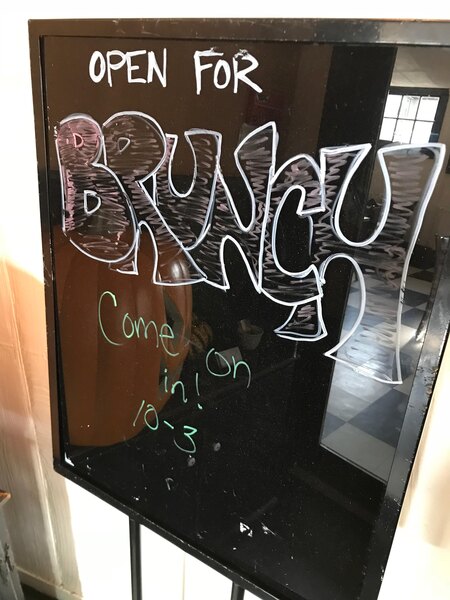 OPEN FOR
BRUNCH
Come On
in!
10-3